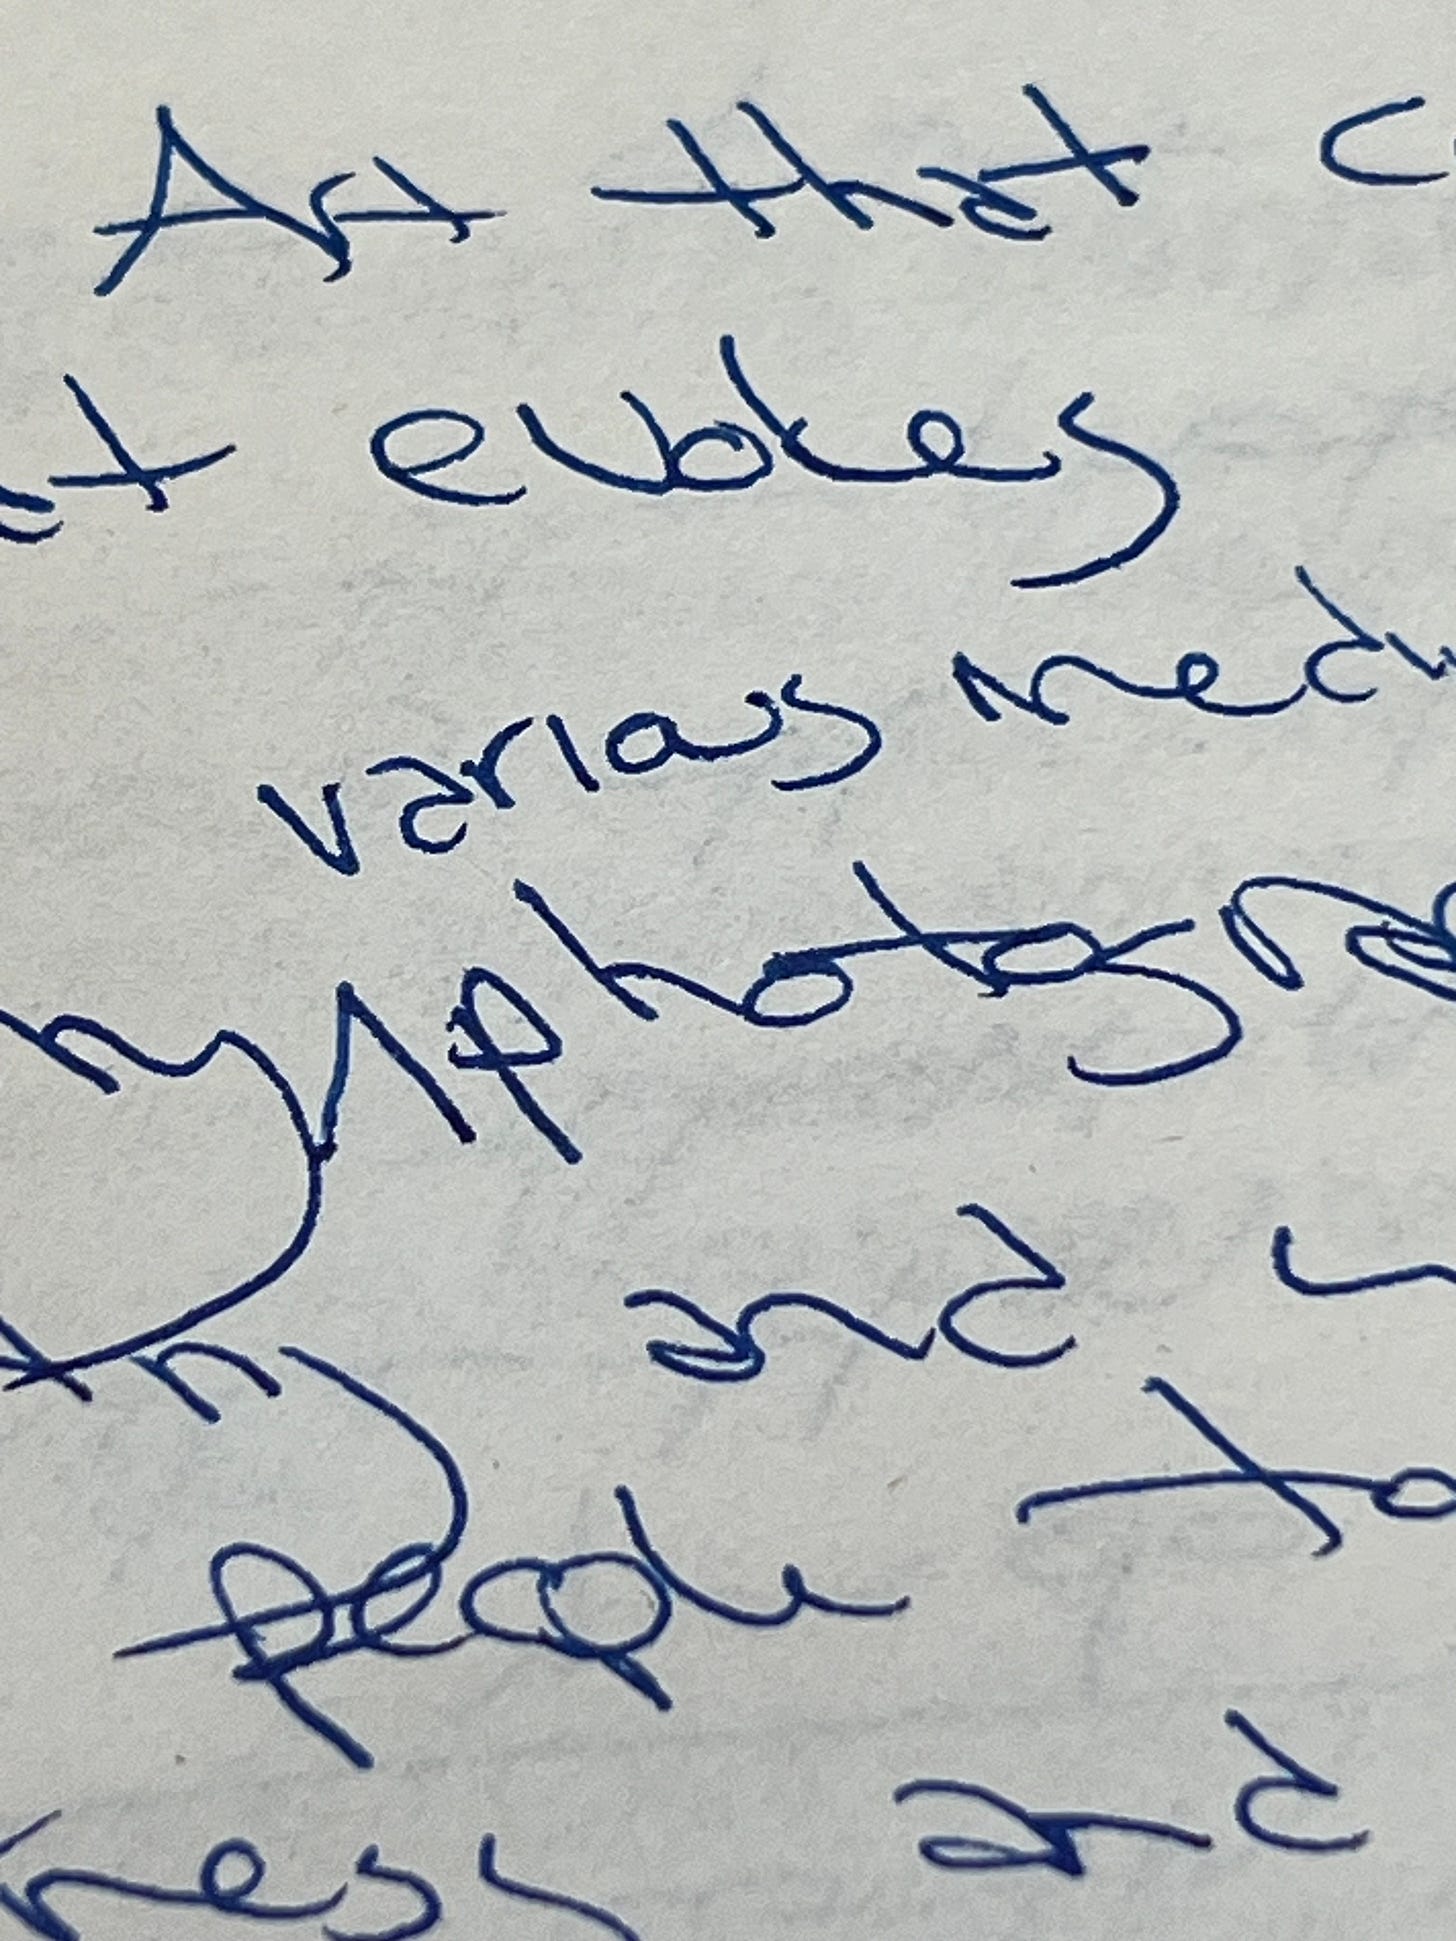 Art that c
at evokes
various medi
hy, photogra
and
people to
ness and